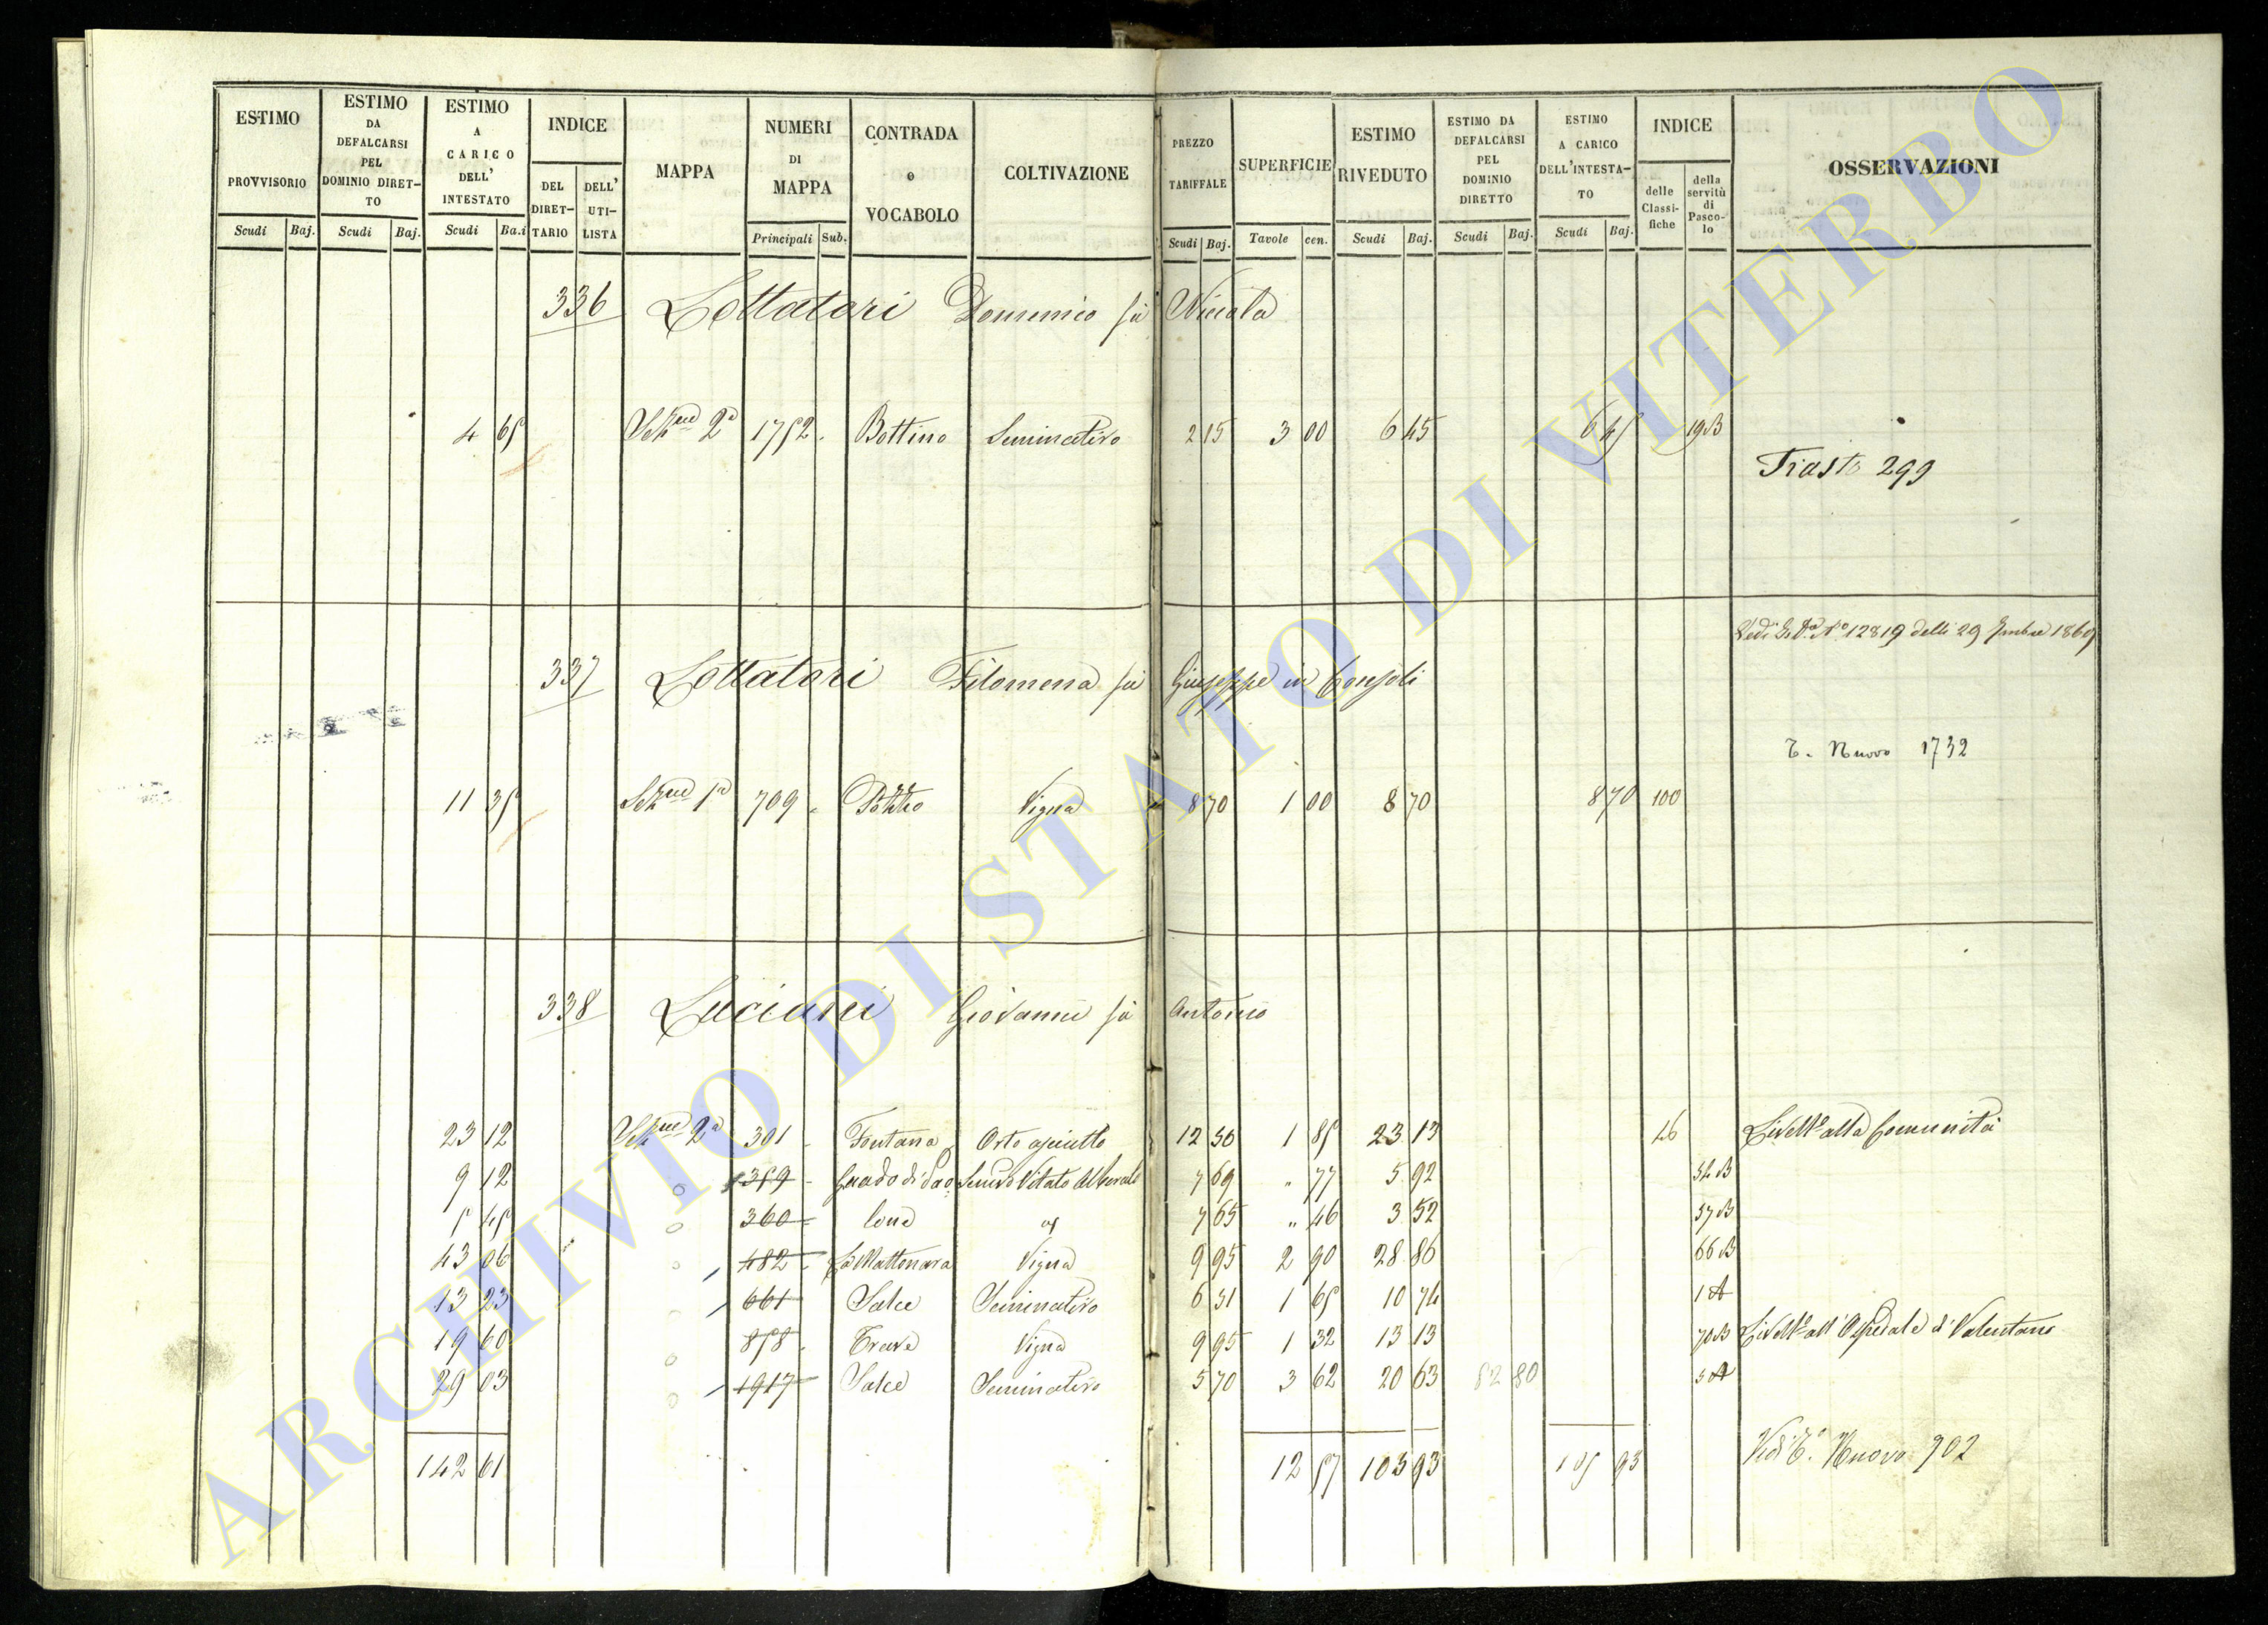 ESTIMO PROVVISORIO
Scudi Baj.
ESTIMO DA DEFALCARSI PEL DOMINIO DIRET-TO
Scudi Baj.
ESTIMO A CARICO DELL' INTESTATO
Scudi Ba.i
INDICE
DEL DIRET-TARIO
DELL' UTI-LISTA
MAPPA
NUMERI DI MAPPA
Principali Sub.
CONTRADA e VOCABOLO
COLTIVAZIONE
PREZZO TARIFFALE
Scudi Baj.
SUPERFICIE
Tavole cen.
ESTIMO RIVEDUTO
Scudi Baj.
ESTIMO DA DEFALCARSI PEL DOMINIO DIRETTO
Scudi Baj.
ESTIMO A CARICO DELL'INTESTA-TO
Scudi Baj.
INDICE
delle Classi-fiche
della servitù di Pasco-lo
OSSERVAZIONI
336 Lottatori Domenico fù Nicola
4 65 Sez.ne 2a 1752 Bottino Seminativo 2 15 3 00 6 45 6 45 19B
Trasto 299
N.o 12819 delli 29
337 Lottatori Filomena fù Giuseppe in Consoli
T. Nuovo 1732
11 35 Sez.ne 1a 709 Pozzo Vigna 8 70 1 00 8 70 8 70 100
338 Luciani Giovanni fù Antonio
23 12 Sez.ne 2a 301 Fontana Orto asciutto 12 50 1 85 23 13 46 Livell.o alla Comunità
9 12 359 Seminvo Vitato Alberato 7 69 " 77 5 92 54B
5 45 360 7 65 " 46 3 52 57B
43 06 482 La Mattonara Vigna 9 95 2 90 28 86 66B
13 23 661 Salce Seminativo 6 51 1 65 10 74 1A
19 60 858 Vigna 9 95 1 32 13 13 70B Livell.o all'Ospedale di Valentano
29 03 1917 Salce Seminativo 5 70 3 62 20 63 82 80 5A
142 61 12 57 103 93 105 93
Vedi T. Nuovo 902
ARCHIVIO DI STATO DI VITERBO